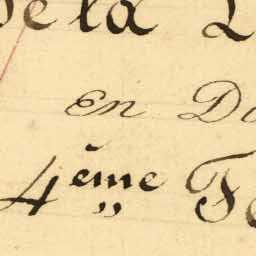 de la
En D
4ème F